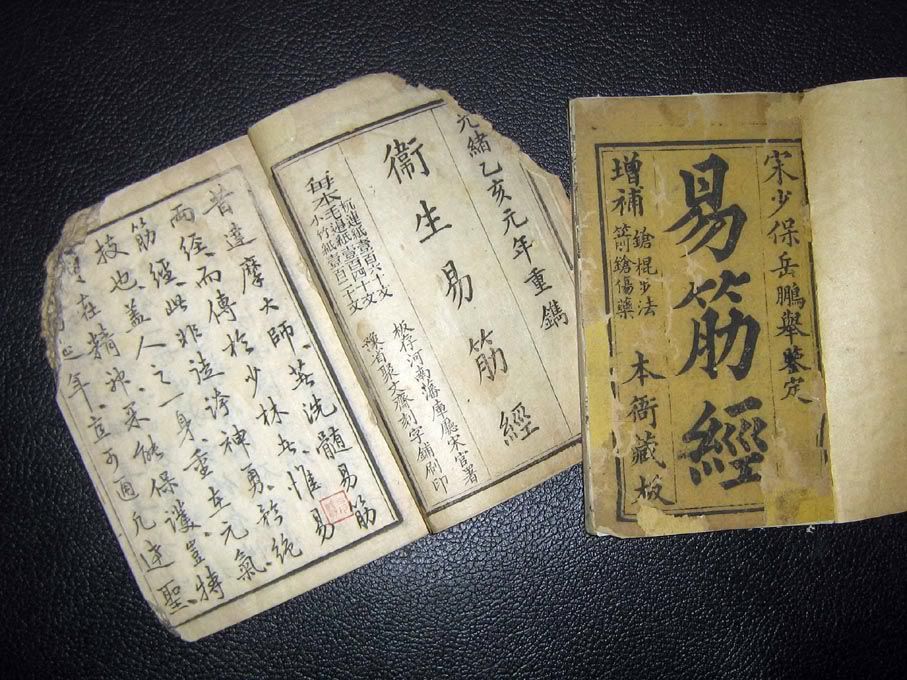 光緒乙亥元年重鐫
衛生易筋經
每本
杭連紙壹百六十文
毛邊紙壹百四十文
小竹紙壹百二十文
板存河南藩庫廳宋官署
豫省聚文齋刻字鋪刷印
昔達摩大師、著洗髓易筋
兩經、而傳於少林、惟易
筋經、此非造神勇、誇絕
技也、盖人之一身、重在元氣、
在精神、果能保護、豈特
年、立可通達聖、
宋少保岳鵬舉鑒定
易筋經
增補
鎗棍步法
箭鎗傷藥
本衙藏板